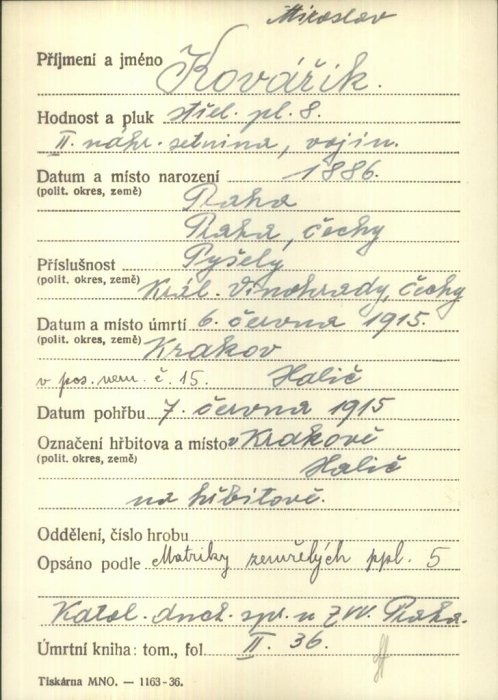 Miroslav
Příjmení a jméno Kovářík.
Hodnost a pluk střel. pl. 8.
II. náhr. setnina, vojín.
Datum a místo narození 1886.
(polit. okres, země) Praha
Praha, Čechy
Příslušnost Pyšely
(polit. okres, země) Král. Vinohrady, Čechy
Datum a místo úmrtí 6. června 1915.
(polit. okres, země) Krakov
v pos. nem. č. 15. Halič
Datum pohřbu 7. června 1915
Označení hřbitova a místo v Krakově
(polit. okres, země) Halič
na hřbitově.
Oddělení, číslo hrobu
Opsáno podle Matriky zemřelých ppl. 5
Katol. duch. spr. u ZVV. Praha.
Úmrtní kniha: tom., fol II. 36.
Tiskárna MNO. — 1163-36.